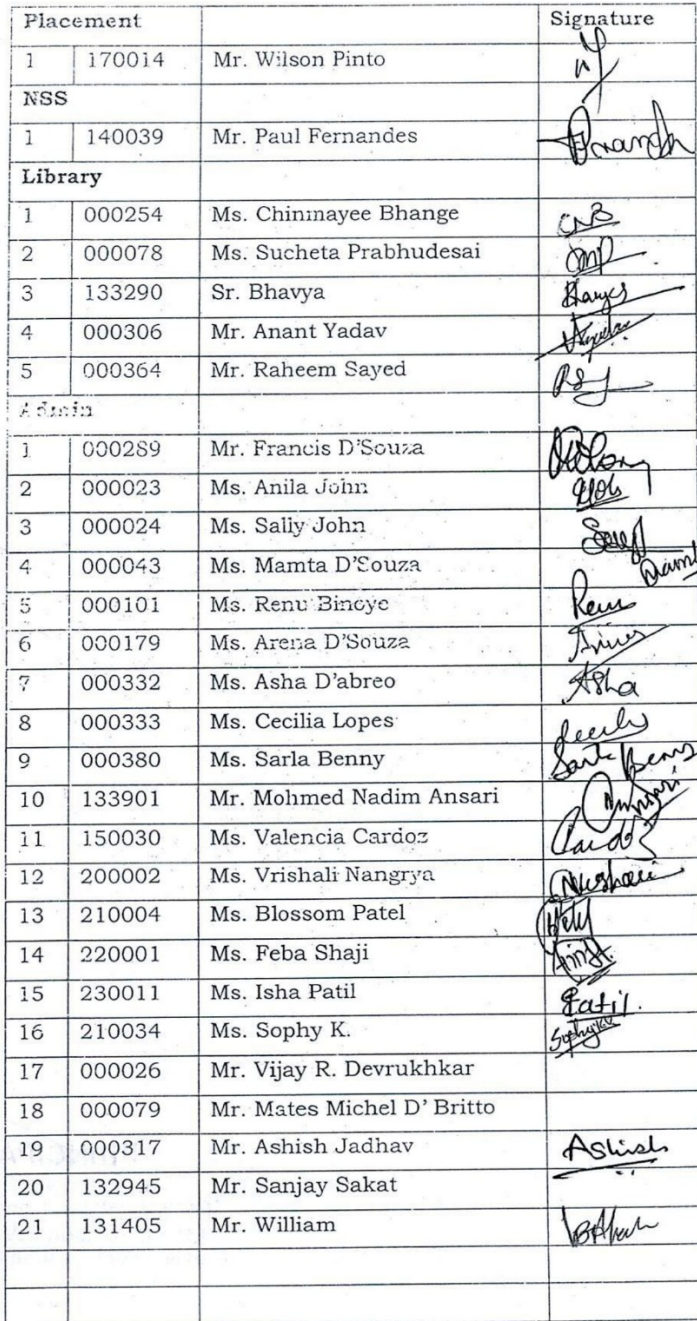 Placement Signature
1 170014 Mr. Wilson Pinto
NSS
1 140039 Mr. Paul Fernandes
Library
1 000254 Ms. Chinmayee Bhange CNB
2 000078 Ms. Sucheta Prabhudesai
3 133290 Sr. Bhavya
4 000306 Mr. Anant Yadav
5 000364 Mr. Raheem Sayed
Admin
1 000289 Mr. Francis D'Souza
2 000023 Ms. Anila John
3 000024 Ms. Sally John
4 000043 Ms. Mamta D'Souza
5 000101 Ms. Renu Binoye Renu
6 000179 Ms. Arena D'Souza
7 000332 Ms. Asha D'abreo Asha
8 000333 Ms. Cecilia Lopes
9 000380 Ms. Sarla Benny Sarla Benny
10 133901 Mr. Mohmed Nadim Ansari Ansari
11 150030 Ms. Valencia Cardoz Cardoz
12 200002 Ms. Vrishali Nangrya
13 210004 Ms. Blossom Patel
14 220001 Ms. Feba Shaji
15 230011 Ms. Isha Patil Patil.
16 210034 Ms. Sophy K. Sophy
17 000026 Mr. Vijay R. Devrukhkar
18 000079 Mr. Mates Michel D' Britto
19 000317 Mr. Ashish Jadhav Ashish
20 132945 Mr. Sanjay Sakat
21 131405 Mr. William